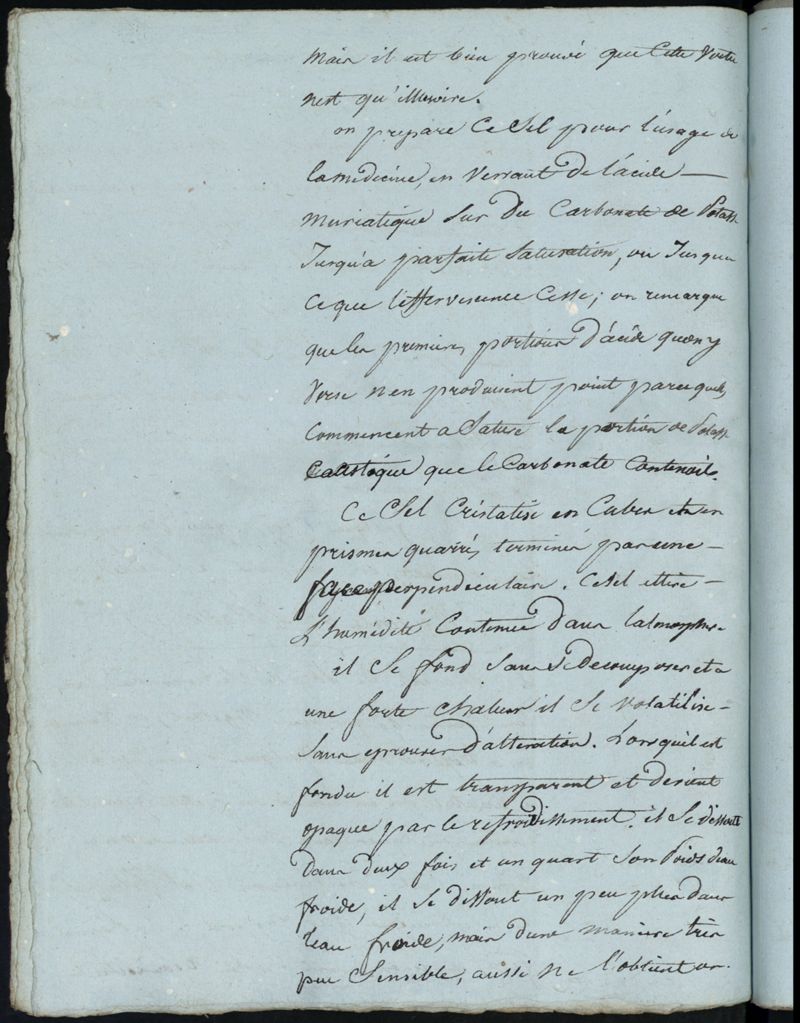 mais il est bien prouvé que Cette Vertu
nest qu'illusoire.
on prepare Ce Sel pour l'usage de
la medecine, en Versant De l'acide
muriatique Sur Du Carbonate de Potass
Jusqu'a parfaite Saturation, ou Jusqua
Ce que l'effervescence Cesse; on remarque
que les premieres portions D'acide quon y
Verse n'en produisent point parcequelles
Commencent a Saturé la portion de Potass
Caustique que le Carbonate Contenoit.
Ce Sel Cristalise en Cubes et en
prismes quarrés terminés par une
face perpendiculaire. Ce Sel attire
L'humidité Contenue Dans latmosphere
il Se fond Sans Se Decomposer et a
une forte chaleur il Se volatilise
Sans eprouver D'alteration. Lorsquil est
fondu il est transparent et devient
opaque par le refroidissement. il Se dissout
Dans deux fois et un quart Son Poids deau
froide, il Se dissout un peu plus dans
leau froide, mais d'une maniere très
peu Sensible, aussi ne l'obtient on